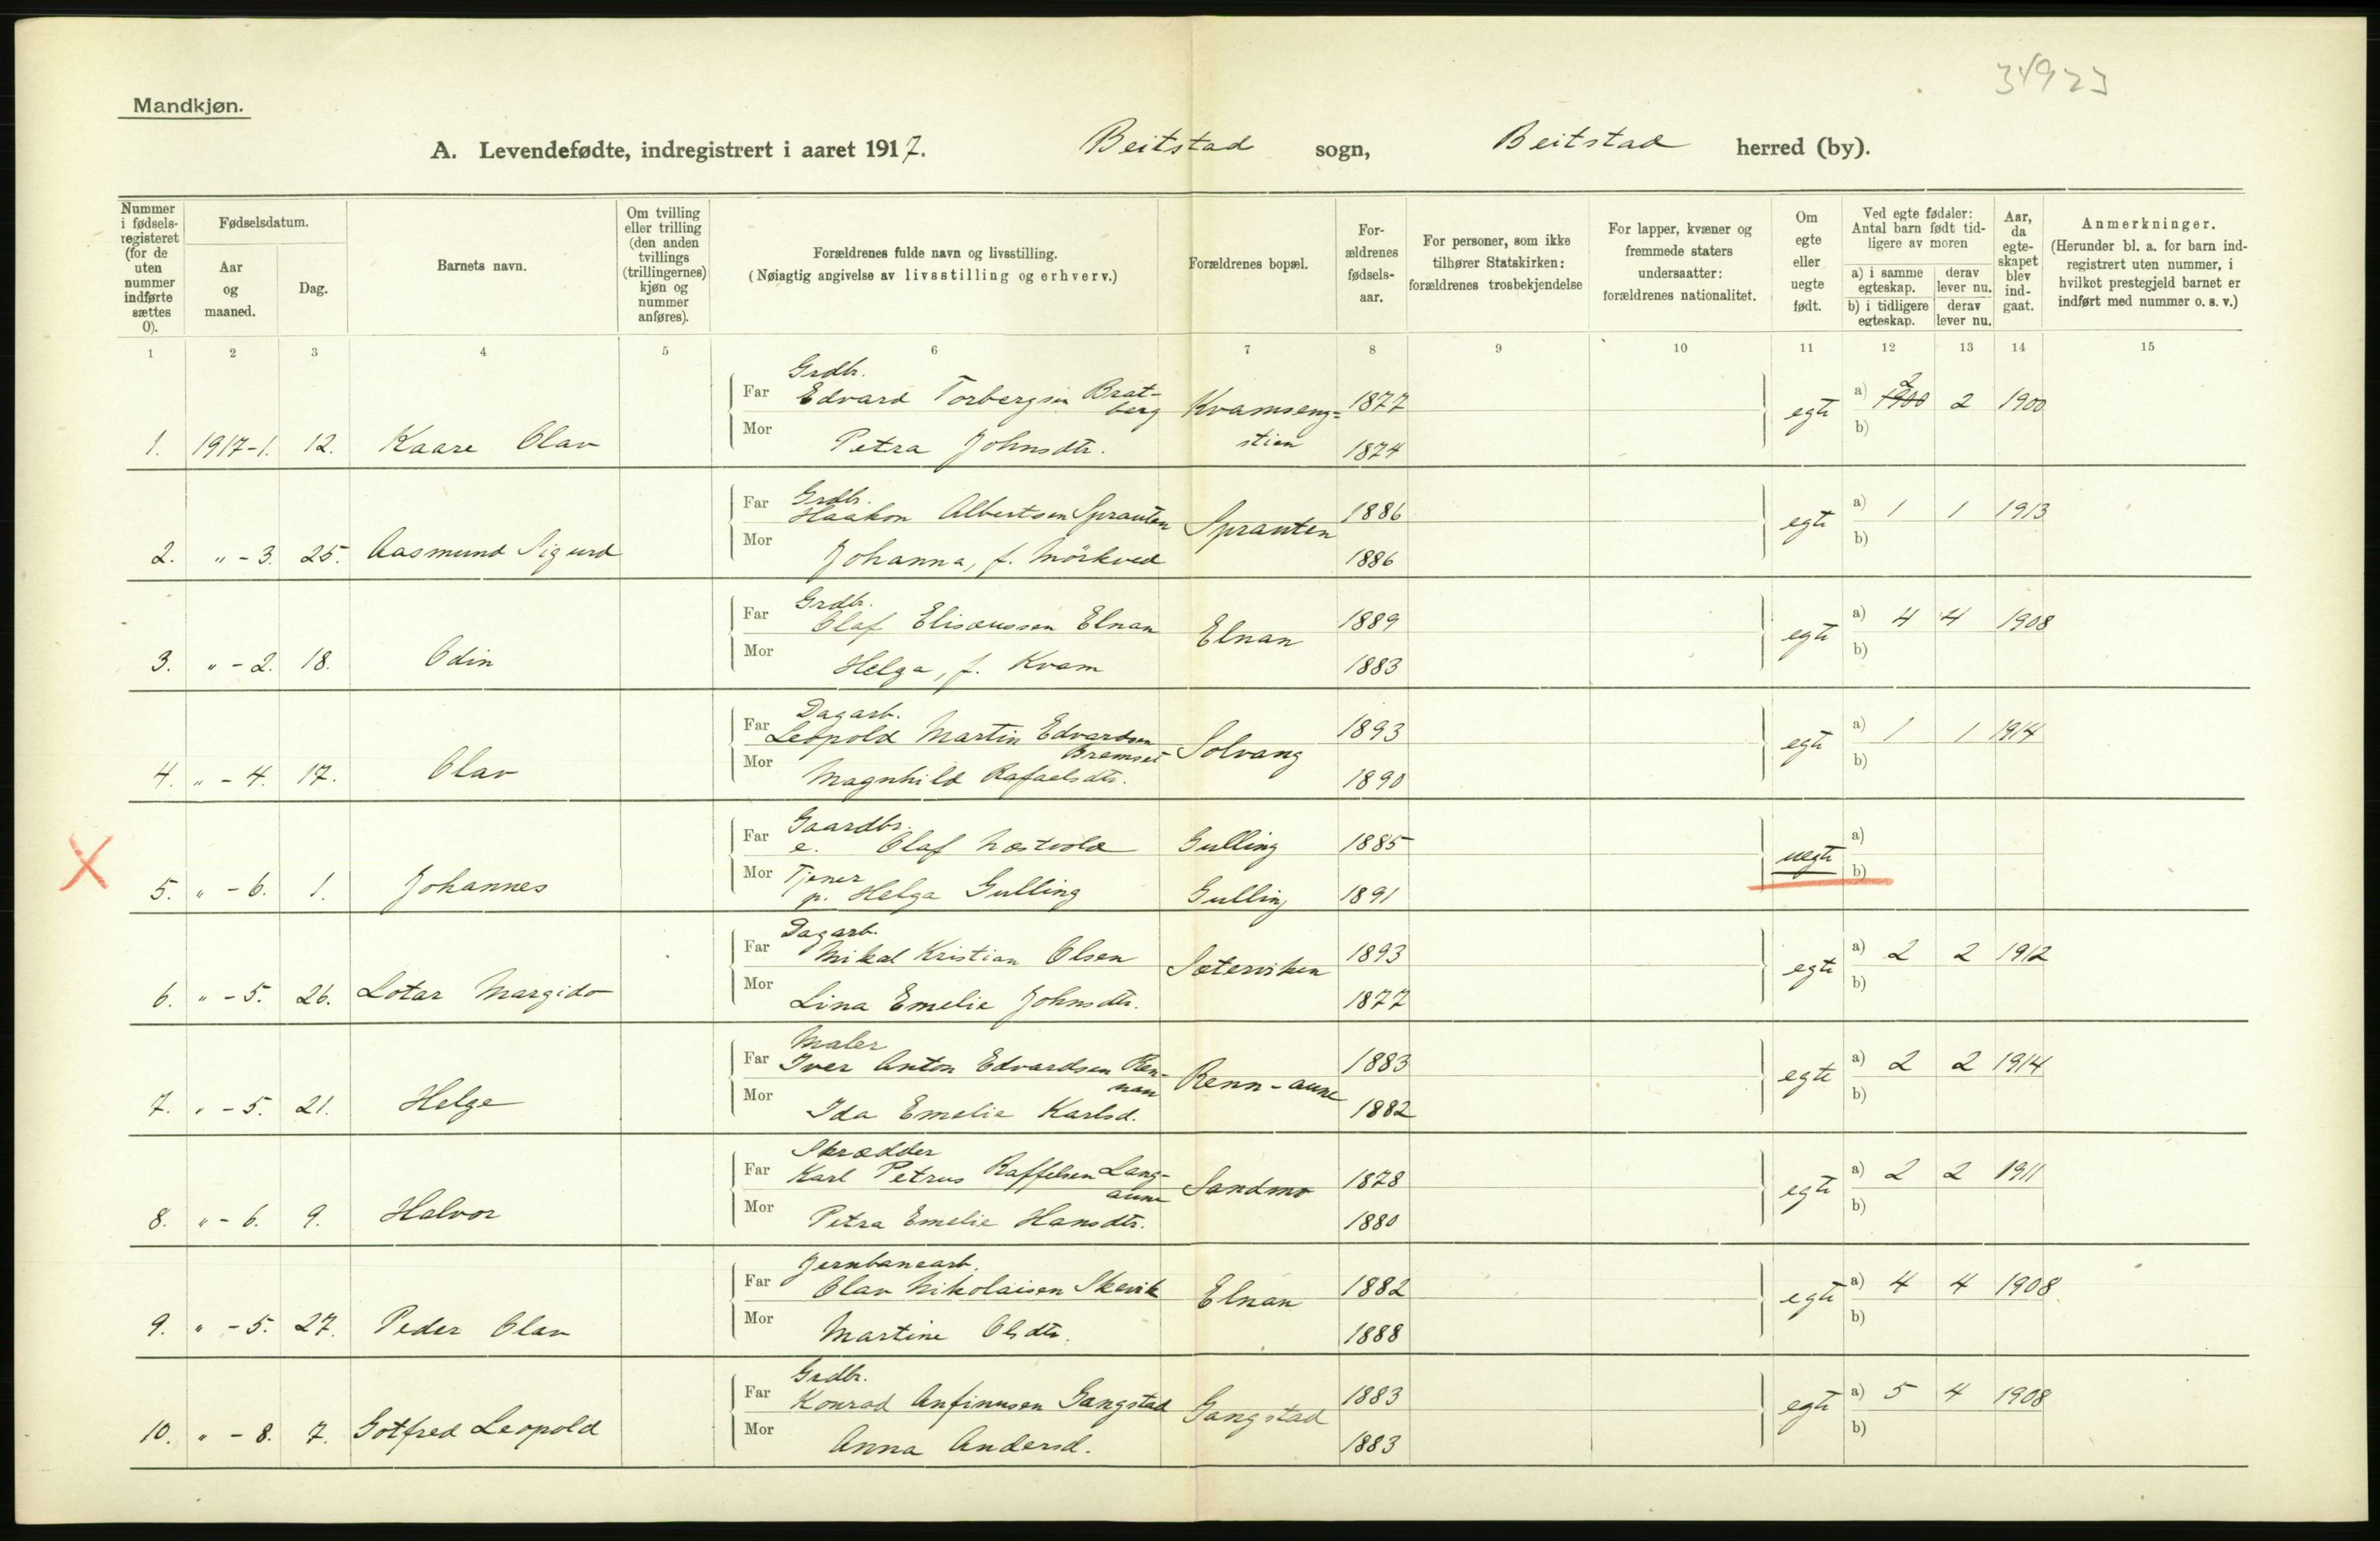 34923
Mandkjøn.
A. Levendefødte, indregistrert i aaret 1917. Beitstad sogn, Beitstad herred (by).
Nummer i fødselsregisteret (for de uten nummer indførte sættes 0).
Fødselsdatum.
Aar og maaned.
Dag.
Barnets navn.
Om tvilling eller trilling (den anden tvillings (trillingernes) kjøn og nummer anføres).
Forældrenes fulde navn og livsstilling.
(Nøiagtig angivelse av livsstilling og erhverv.)
Forældrenes bopæl.
Forældrenes fødselsaar.
For personer, som ikke tilhører Statskirken: forældrenes trosbekjendelse
For lapper, kvæner og fremmede staters undersaatter: forældrenes nationalitet.
Om egte eller uegte født.
Ved egte fødsler: Antal barn født tidligere av moren
a) i samme egteskap. derav lever nu.
b) i tidligere egteskap. derav lever nu.
Aar, da egteskapet blev indgaat.
Anmerkninger.
(Herunder bl. a. for barn indregistrert uten nummer, i hvilket prestegjeld barnet er indført med nummer o. s. v.)
1 2 3 4 5 6 7 8 9 10 11 12 13 14 15
Grdbr.
Far Edvard Torbergsen Bratberg Kvamseng= 1877 egte a) 1900 2 2 1900
1. 1917-1. 12. Kaare Olav Mor Petra Johnsdtr. stien 1874 b)
Grdbr.
Far Haakon Albertsen Sprauten Sprauten 1886 egte a) 1 1 1913
2. " - 3. 25. Aasmund Sigurd Mor Johanna, f. Mörkved 1886 b)
Grdbr.
Far Olaf Elisæussen Elnan Elnan 1889 egte a) 4 4 1908
3. " - 2. 18. Odin Mor Helga, f. Kvam 1883 b)
Dagarb.
Far Leopold Martin Edvardsen Bremset Solvang 1893 egte a) 1 1 1914
4. " - 4. 17. Olav Mor Magnhild Rafaelsdtr. 1890 b)
Gaardbr.
X Far e. Olaf Næstvold Gulling 1885 uegte a)
5. " - 6. 1. Johannes Mor Tjener p. Helga Gulling Gulling 1891 b)
Dagarb.
Far Mikal Kristian Olsen Sæterviken 1893 egte a) 2 2 1912
6. " - 5. 26. Lotar Margido Mor Lina Emelie Johnsdtr. 1877 b)
Maler
Far Iver Anton Edvardsen Rennan Renn-aune 1883 egte a) 2 2 1914
7. " - 5. 21. Helge Mor Ida Emelie Karlsd. 1882 b)
Skrædder
Far Karl Petrus Raffelsen Langaune Sandmo 1878 egte a) 2 2 1911
8. " - 6. 9. Halvor Mor Petra Emelie Hansdtr. 1880 b)
Jernbanearb.
Far Olav Nikolaisen Skevik Elnan 1882 egte a) 4 4 1908
9. " - 5. 27. Peder Olav Mor Martine Olsdtr. 1888 b)
Grdbr.
Far Konrad Anfinnsen Gangstad Gangstad 1883 egte a) 5 4 1908
10. " - 8. 7. Gotfred Leopold Mor Anna Andersd. 1883 b)